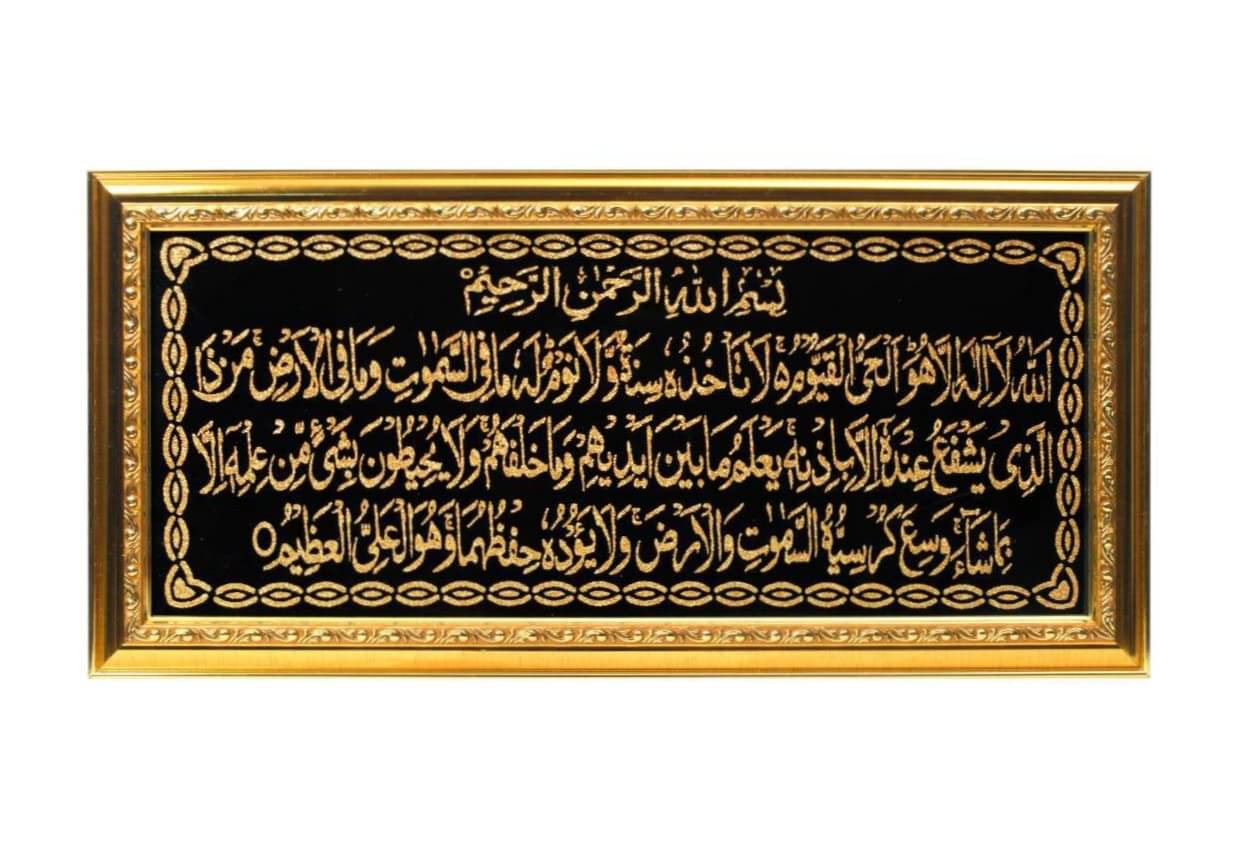 بِسْمِ اللهِ الرَّحْمٰنِ الرَّحِيْمِ
اَللهُ لَا اِلٰهَ اِلَّا هُوَ اَلْحَيُّ الْقَيُّوْمُ لَا تَاْخُذُهٗ سِنَةٌ وَّلَا نَوْمٌ لَهٗ مَا فِى السَّمٰوٰتِ وَمَا فِى الْاَرْضِ مَنْ ذَا
الَّذِىْ يَشْفَعُ عِنْدَهٗ اِلَّا بِاِذْنِهٖ يَعْلَمُ مَا بَيْنَ اَيْدِيْهِمْ وَمَا خَلْفَهُمْ وَلَا يُحِيْطُوْنَ بِشَىْءٍ مِّنْ عِلْمِهٖ اِلَّا
بِمَا شَآءَ وَسِعَ كُرْسِيُّهُ السَّمٰوٰتِ وَالْاَرْضَ وَلَا يَؤُدُهٗ حِفْظُهُمَا وَهُوَ الْعَلِىُّ الْعَظِيْمُ ○